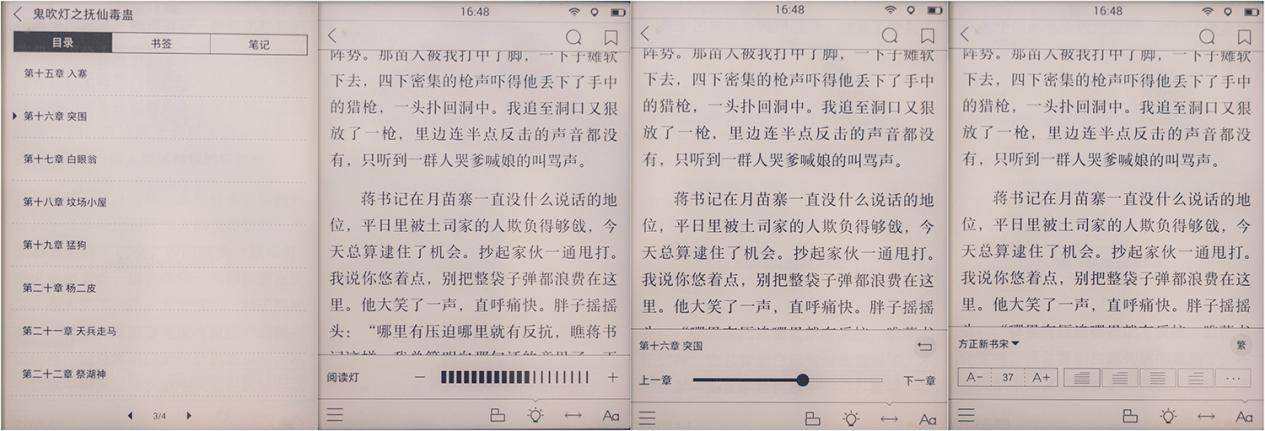 鬼吹灯之抚仙毒蛊
目录 书签 笔记
第十五章 入塞
第十六章 突围
第十七章 白眼翁
第十八章 坟场小屋
第十九章 猛狗
第二十章 杨二皮
第二十一章 天兵走马
第二十二章 祭湖神
3/4
16:48
阵势。那苗人被我打中了脚，一下子瘫软
下去，四下密集的枪声吓得他丢下了手中
的猎枪，一头扑回洞中。我追至洞口又狠
放了一枪，里边连半点反击的声音都没
有，只听到一群人哭爹喊娘的叫骂声。
蒋书记在月苗寨一直没什么说话的地
位，平日里被土司家的人欺负得够戗，今
天总算逮住了机会。抄起家伙一通甩打。
我说你悠着点，别把整袋子弹都浪费在这
里。他大笑了一声，直呼痛快。胖子摇摇
头：“哪里有压迫哪里就有反抗，瞧蒋书
阅读灯 − +
Aa
16:48
阵势。那苗人被我打中了脚，一下子瘫软
下去，四下密集的枪声吓得他丢下了手中
的猎枪，一头扑回洞中。我追至洞口又狠
放了一枪，里边连半点反击的声音都没
有，只听到一群人哭爹喊娘的叫骂声。
蒋书记在月苗寨一直没什么说话的地
位，平日里被土司家的人欺负得够戗，今
天总算逮住了机会。抄起家伙一通甩打。
我说你悠着点，别把整袋子弹都浪费在这
里。他大笑了一声，直呼痛快。胖子摇摇
第十六章 突围
上一章 下一章
Aa
16:48
阵势。那苗人被我打中了脚，一下子瘫软
下去，四下密集的枪声吓得他丢下了手中
的猎枪，一头扑回洞中。我追至洞口又狠
放了一枪，里边连半点反击的声音都没
有，只听到一群人哭爹喊娘的叫骂声。
蒋书记在月苗寨一直没什么说话的地
位，平日里被土司家的人欺负得够戗，今
天总算逮住了机会。抄起家伙一通甩打。
我说你悠着点，别把整袋子弹都浪费在这
里。他大笑了一声，直呼痛快。胖子摇摇
方正新书宋 繁
A- 37 A+ ...
Aa